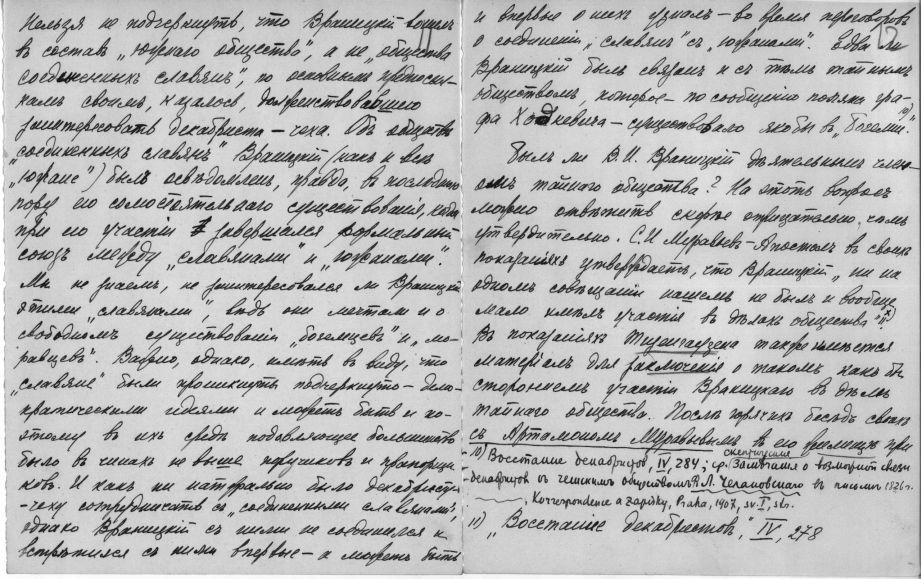 Нельзя не подчеркнуть, что Враницкій вошелъ
въ составъ „Южнаго общества", а не „общества
соединенныхъ славянъ", по основнымъ предпосыл-
камъ своимъ, казалось, долженствовавшаго
заинтересовать декабриста – чеха. Объ обществѣ
„соединенныхъ славянъ" Враницкій (какъ и всѣ
„южане") былъ освѣдомленъ, правда, въ послѣднюю
пору его самостоятельнаго существованія, когда
при его участіи завершался формальный
союзъ между „славянами" и „южанами".
Мы не знаемъ, не заинтересовался ли Враницкій
этими „славянами", вѣдь они мечтали и о
свободномъ существованіи „богемцевъ" и „мо-
равцевъ". Важно, однако, имѣть въ виду, что
„славяне" были проникнуты подчеркнуто – демо-
кратическими идеями и можетъ быть и по-
этому въ ихъ средѣ подавляющее большинство
было въ чинахъ не выше поручиковъ и прапорщи-
ковъ. И какъ ни натурально было декабристу
-чеху сотрудничать съ „соединенными славянами",
однако Враницкій съ ними не соединился и
встрѣтился съ ними впервые – а можетъ быть
и впервые о нихъ узналъ – во время переговоровъ
о соединеніи „славянъ" съ „южанами". Едва ли
Враницкій былъ связанъ и съ тѣмъ тайнымъ
обществомъ, которое – по сообщенію поляка гра-
фа Ходкевича – существовало якобы въ „Богеміи".10)
Былъ ли В.И. Враницкій дѣятельнымъ член-
омъ тайнаго общества? На этотъ вопросъ
можно отвѣтить скорѣе отрицательно, чѣмъ
утвердительно. С.И. Муравьевъ – Апостолъ въ своихъ
показаніяхъ утверждаетъ, что Враницкій „ни на
одномъ совѣщаніи нашемъ не былъ и вообще
мало имѣлъ участія въ дѣлахъ общества" 11)
Въ показаніяхъ Тизенгаузена также имѣется
матеріалъ для заключенія о такомъ какъ бы
стороннемъ участіи Враницкаго въ дѣлѣ
тайнаго общества. Послѣ горячихъ бесѣдъ своихъ
съ Артамономъ Муравьевымъ въ его при
10) Восстание декабристов, IV, 284; ср. скептические Замѣчания о возможн. связи
декабристов с чешским обществом Ф.Л. Челаковского в письмѣ 1826 г.
Korrespondence a zápisky, Praha, 1907, sv. I,
11) „Восстание декабристов", IV, 278